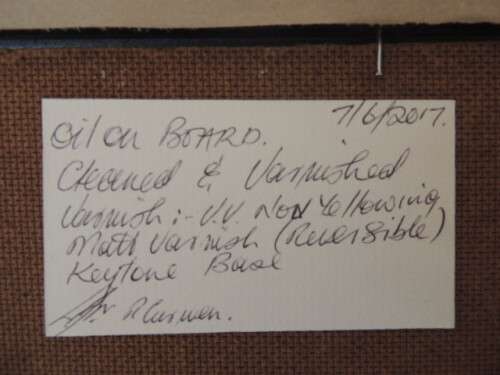 7/6/2017.
Oil on BOARD.
Cleaned & Varnished
Varnish :- U.V. Non Yellowing
Matt Varnish (Reversible)
Keytone Base